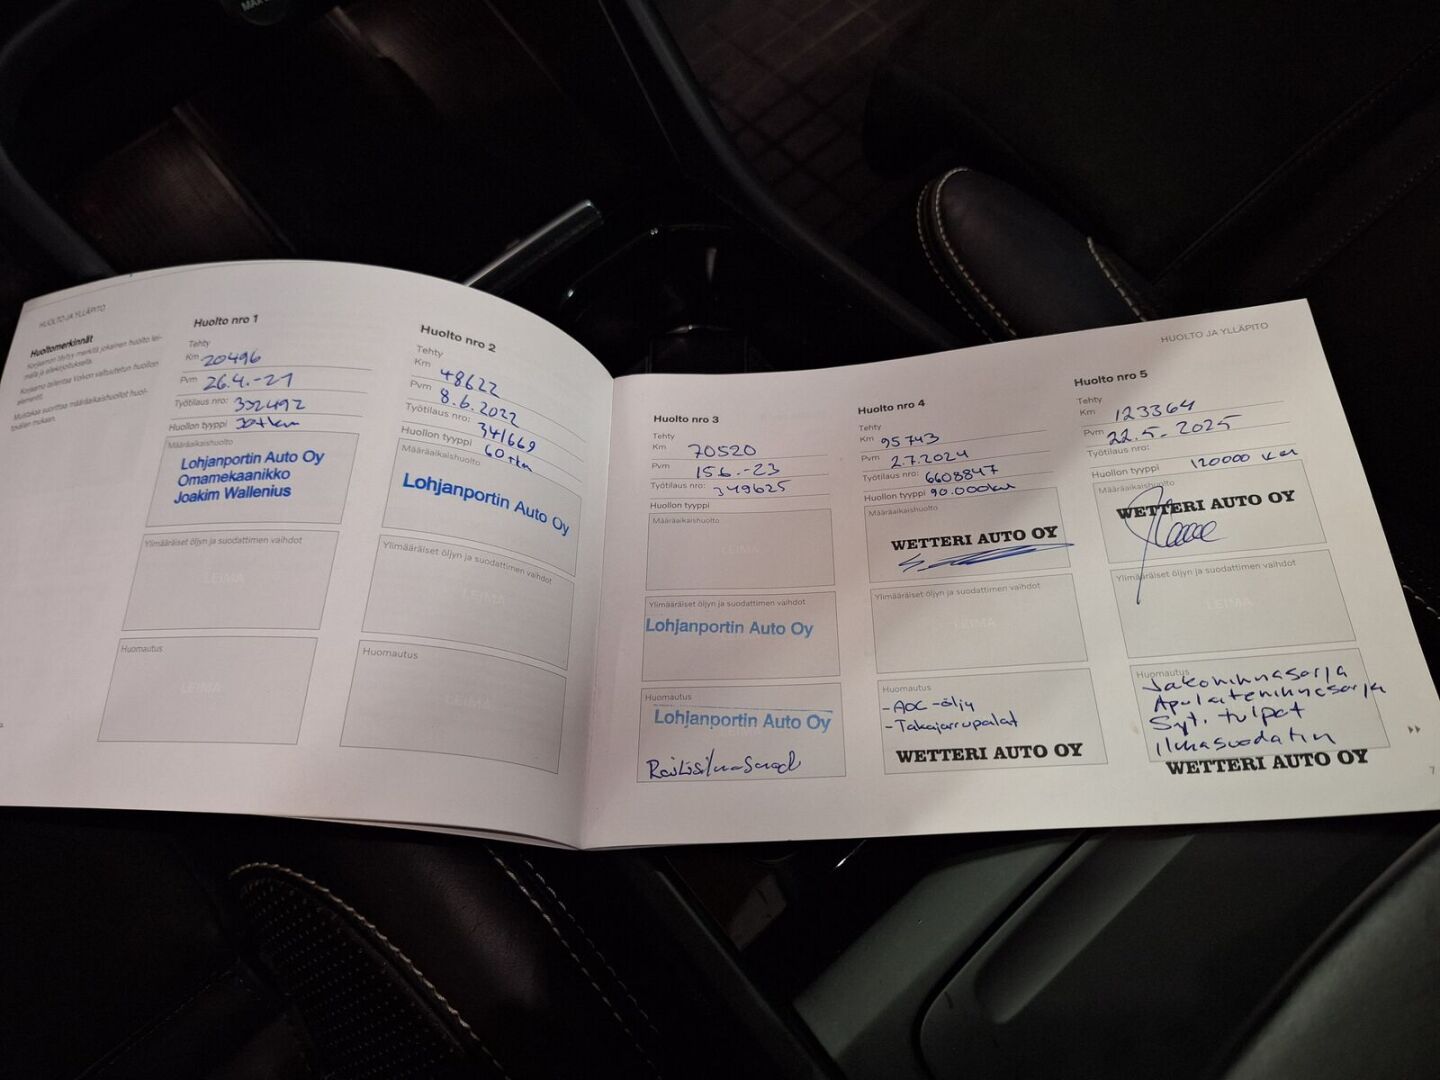 HUOLTO JA YLLÄPITO
Huoltomerkinnät
Huolto nro 1
Tehty
Km 20496
Pvm 26.4.-21
Työtilaus nro: 332492
Huollon tyyppi 30tkm
Määräaikaishuolto
Lohjanportin Auto Oy
Omamekaanikko
Joakim Wallenius
Ylimääräiset öljyn ja suodattimen vaihdot
LEIMA
Huomautus
LEIMA
Huolto nro 2
Tehty
Km 48622
Pvm 8.6.2022
Työtilaus nro: 341669
Huollon tyyppi 60tkm
Määräaikaishuolto
Lohjanportin Auto Oy
Ylimääräiset öljyn ja suodattimen vaihdot
LEIMA
Huomautus
Huolto nro 3
Tehty
Km 70520
Pvm 15.6.-23
Työtilaus nro: 349625
Huollon tyyppi
Määräaikaishuolto
LEIMA
Ylimääräiset öljyn ja suodattimen vaihdot
Lohjanportin Auto Oy
Huomautus
Lohjanportin Auto Oy
Raitisilmasuod
Huolto nro 4
Tehty
Km 95743
Pvm 2.7.2024
Työtilaus nro: 6608847
Huollon tyyppi 90.000km
Määräaikaishuolto
WETTERI AUTO OY
Ylimääräiset öljyn ja suodattimen vaihdot
LEIMA
Huomautus
-AOC-öljy
-Takajarrupalat
WETTERI AUTO OY
HUOLTO JA YLLÄPITO
Huolto nro 5
Tehty
Km 123364
Pvm 22.5.2025
Työtilaus nro:
Huollon tyyppi 120000 km
Määräaikaishuolto
WETTERI AUTO OY
Ylimääräiset öljyn ja suodattimen vaihdot
LEIMA
Huomautus
Jakohihnasarja
Apulaitehihnasarja
Syt. tulpat
Ilmasuodatin
WETTERI AUTO OY
7